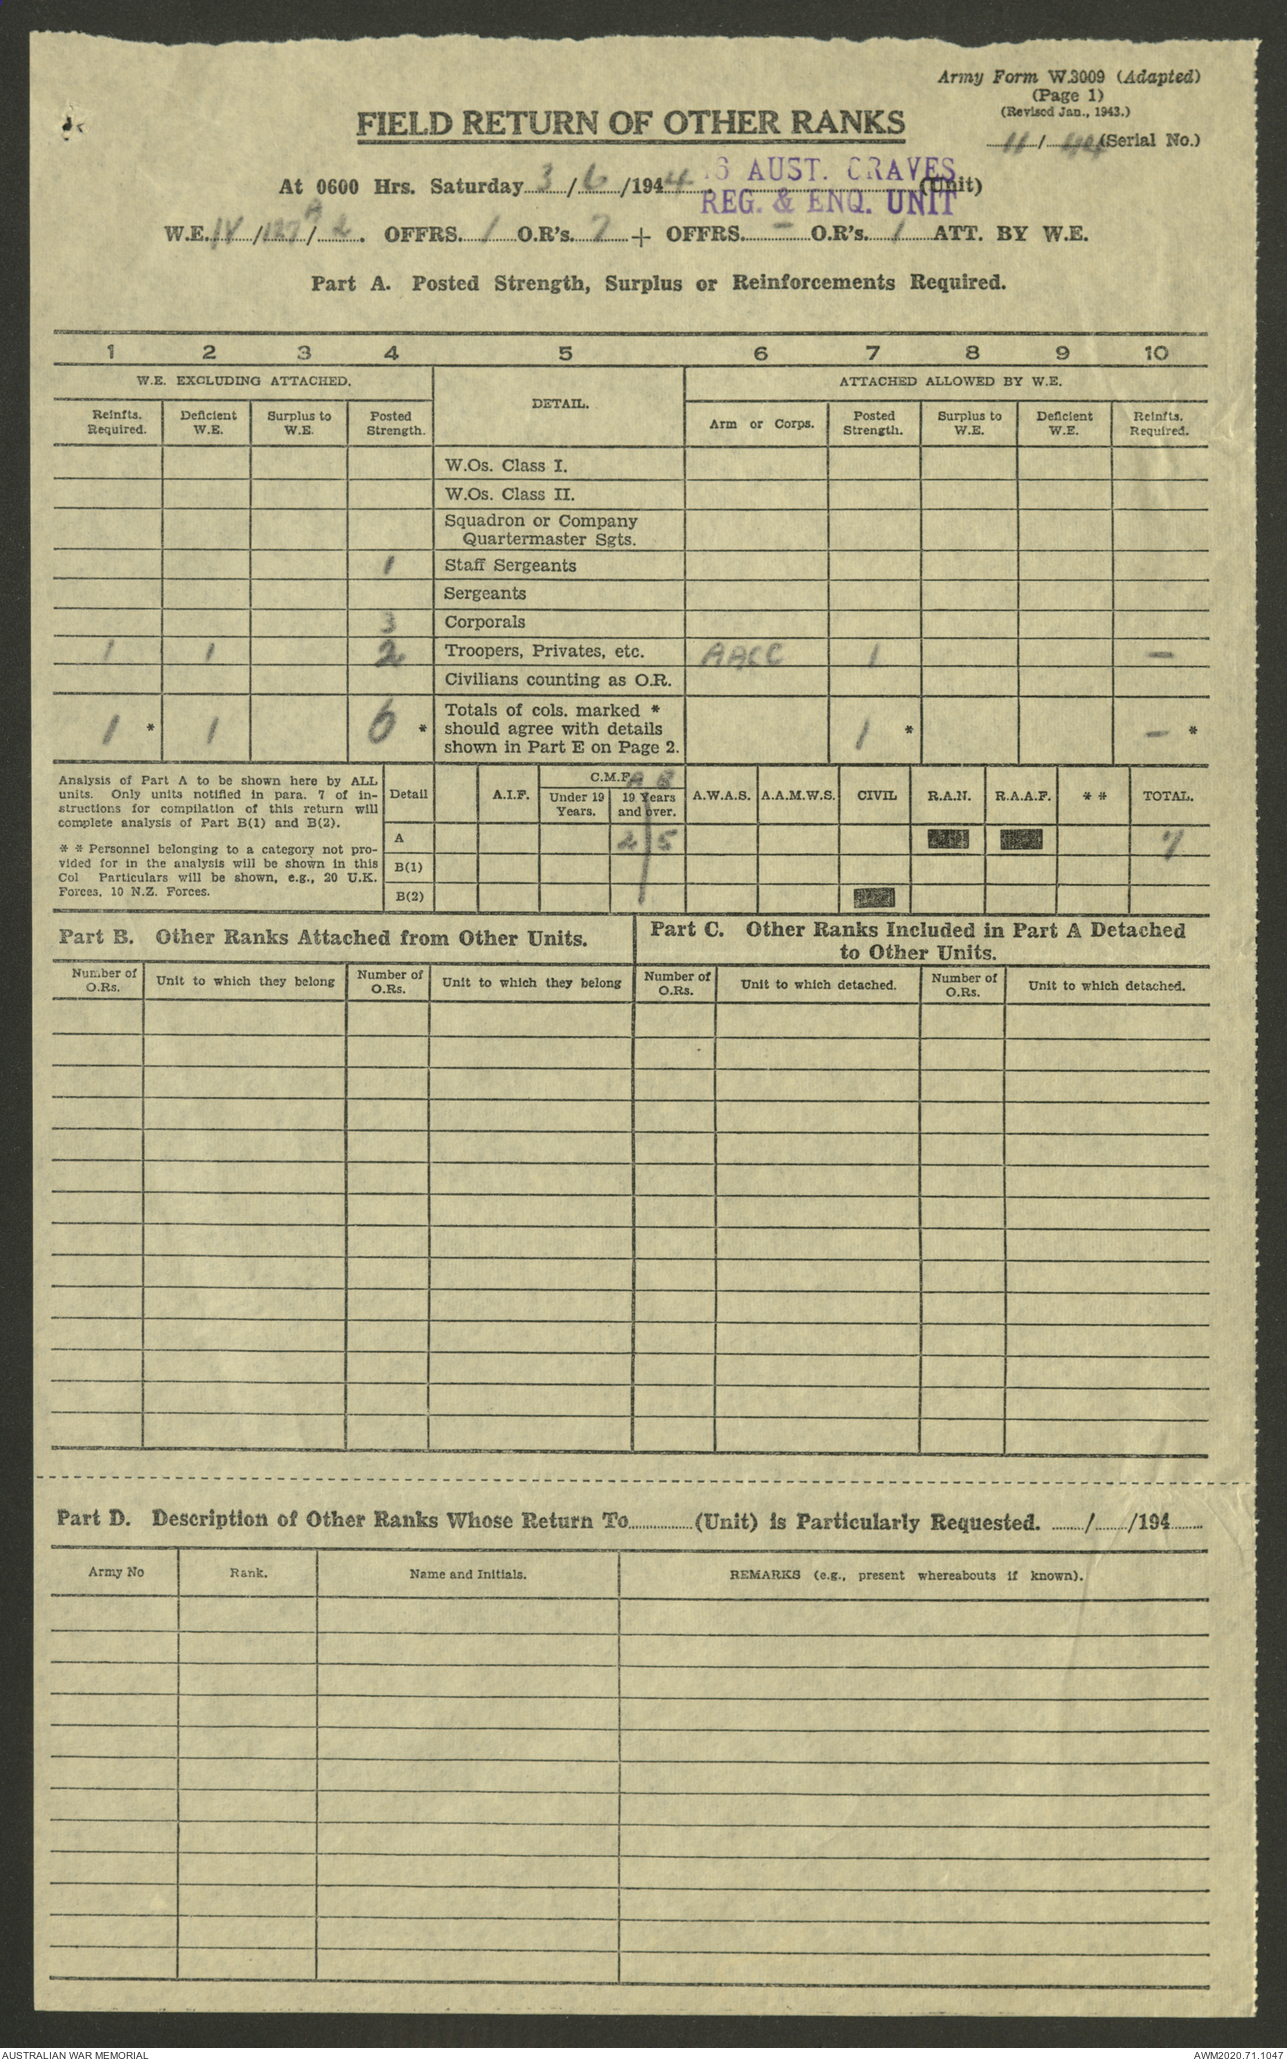 Army Form W.3009 (Adapted)
(Page 1)
(Revised Jan., 1943.)
11/44 (Serial No.)
FIELD RETURN OF OTHER RANKS
At 0600 Hrs. Saturday 3/6/1944 (Unit)
AUST. GRAVES
REG. & ENQ. UNIT
A
W.E. IV/127/2. OFFRS. 1 O.R's. 7 + OFFRS. - O.R's. 1 ATT. BY W.E.
Part A. Posted Strength, Surplus or Reinforcements Required.
1 2 3 4 5 6 7 8 9 10
W.E. EXCLUDING ATTACHED. DETAIL. ATTACHED ALLOWED BY W.E.
Reinfts. Required. Deficient W.E. Surplus to W.E. Posted Strength. Arm or Corps. Posted Strength. Surplus to W.E. Deficient W.E. Reinfts. Required.
W.Os. Class I.
W.Os. Class II.
Squadron or Company
Quartermaster Sgts.
1 Staff Sergeants
Sergeants
3 Corporals
1 1 2 Troopers, Privates, etc. AACC 1 -
Civilians counting as O.R.
1 * 1 6 * Totals of cols. marked * 1 * - *
should agree with details
shown in Part E on Page 2.
Analysis of Part A to be shown here by ALL
units. Only units notified in para. 7 of in-
structions for compilation of this return will
complete analysis of Part B(1) and B(2).
* * Personnel belonging to a category not pro-
vided for in the analysis will be shown in this
Col Particulars will be shown, e.g., 20 U.K.
Forces, 10 N.Z. Forces.
Detail A.I.F. C.M.F. A B A.W.A.S. A.A.M.W.S. CIVIL R.A.N. R.A.A.F. * * TOTAL.
Under 19 Years. 19 Years and over.
A 2 5 7
B(1)
B(2)
Part B. Other Ranks Attached from Other Units.
Part C. Other Ranks Included in Part A Detached
to Other Units.
Number of O.Rs. Unit to which they belong Number of O.Rs. Unit to which they belong Number of O.Rs. Unit to which detached. Number of O.Rs. Unit to which detached.
Part D. Description of Other Ranks Whose Return To (Unit) is Particularly Requested. / /194
Army No Rank. Name and Initials. REMARKS (e.g., present whereabouts if known).
AUSTRALIAN WAR MEMORIAL AWM2020.71.1047